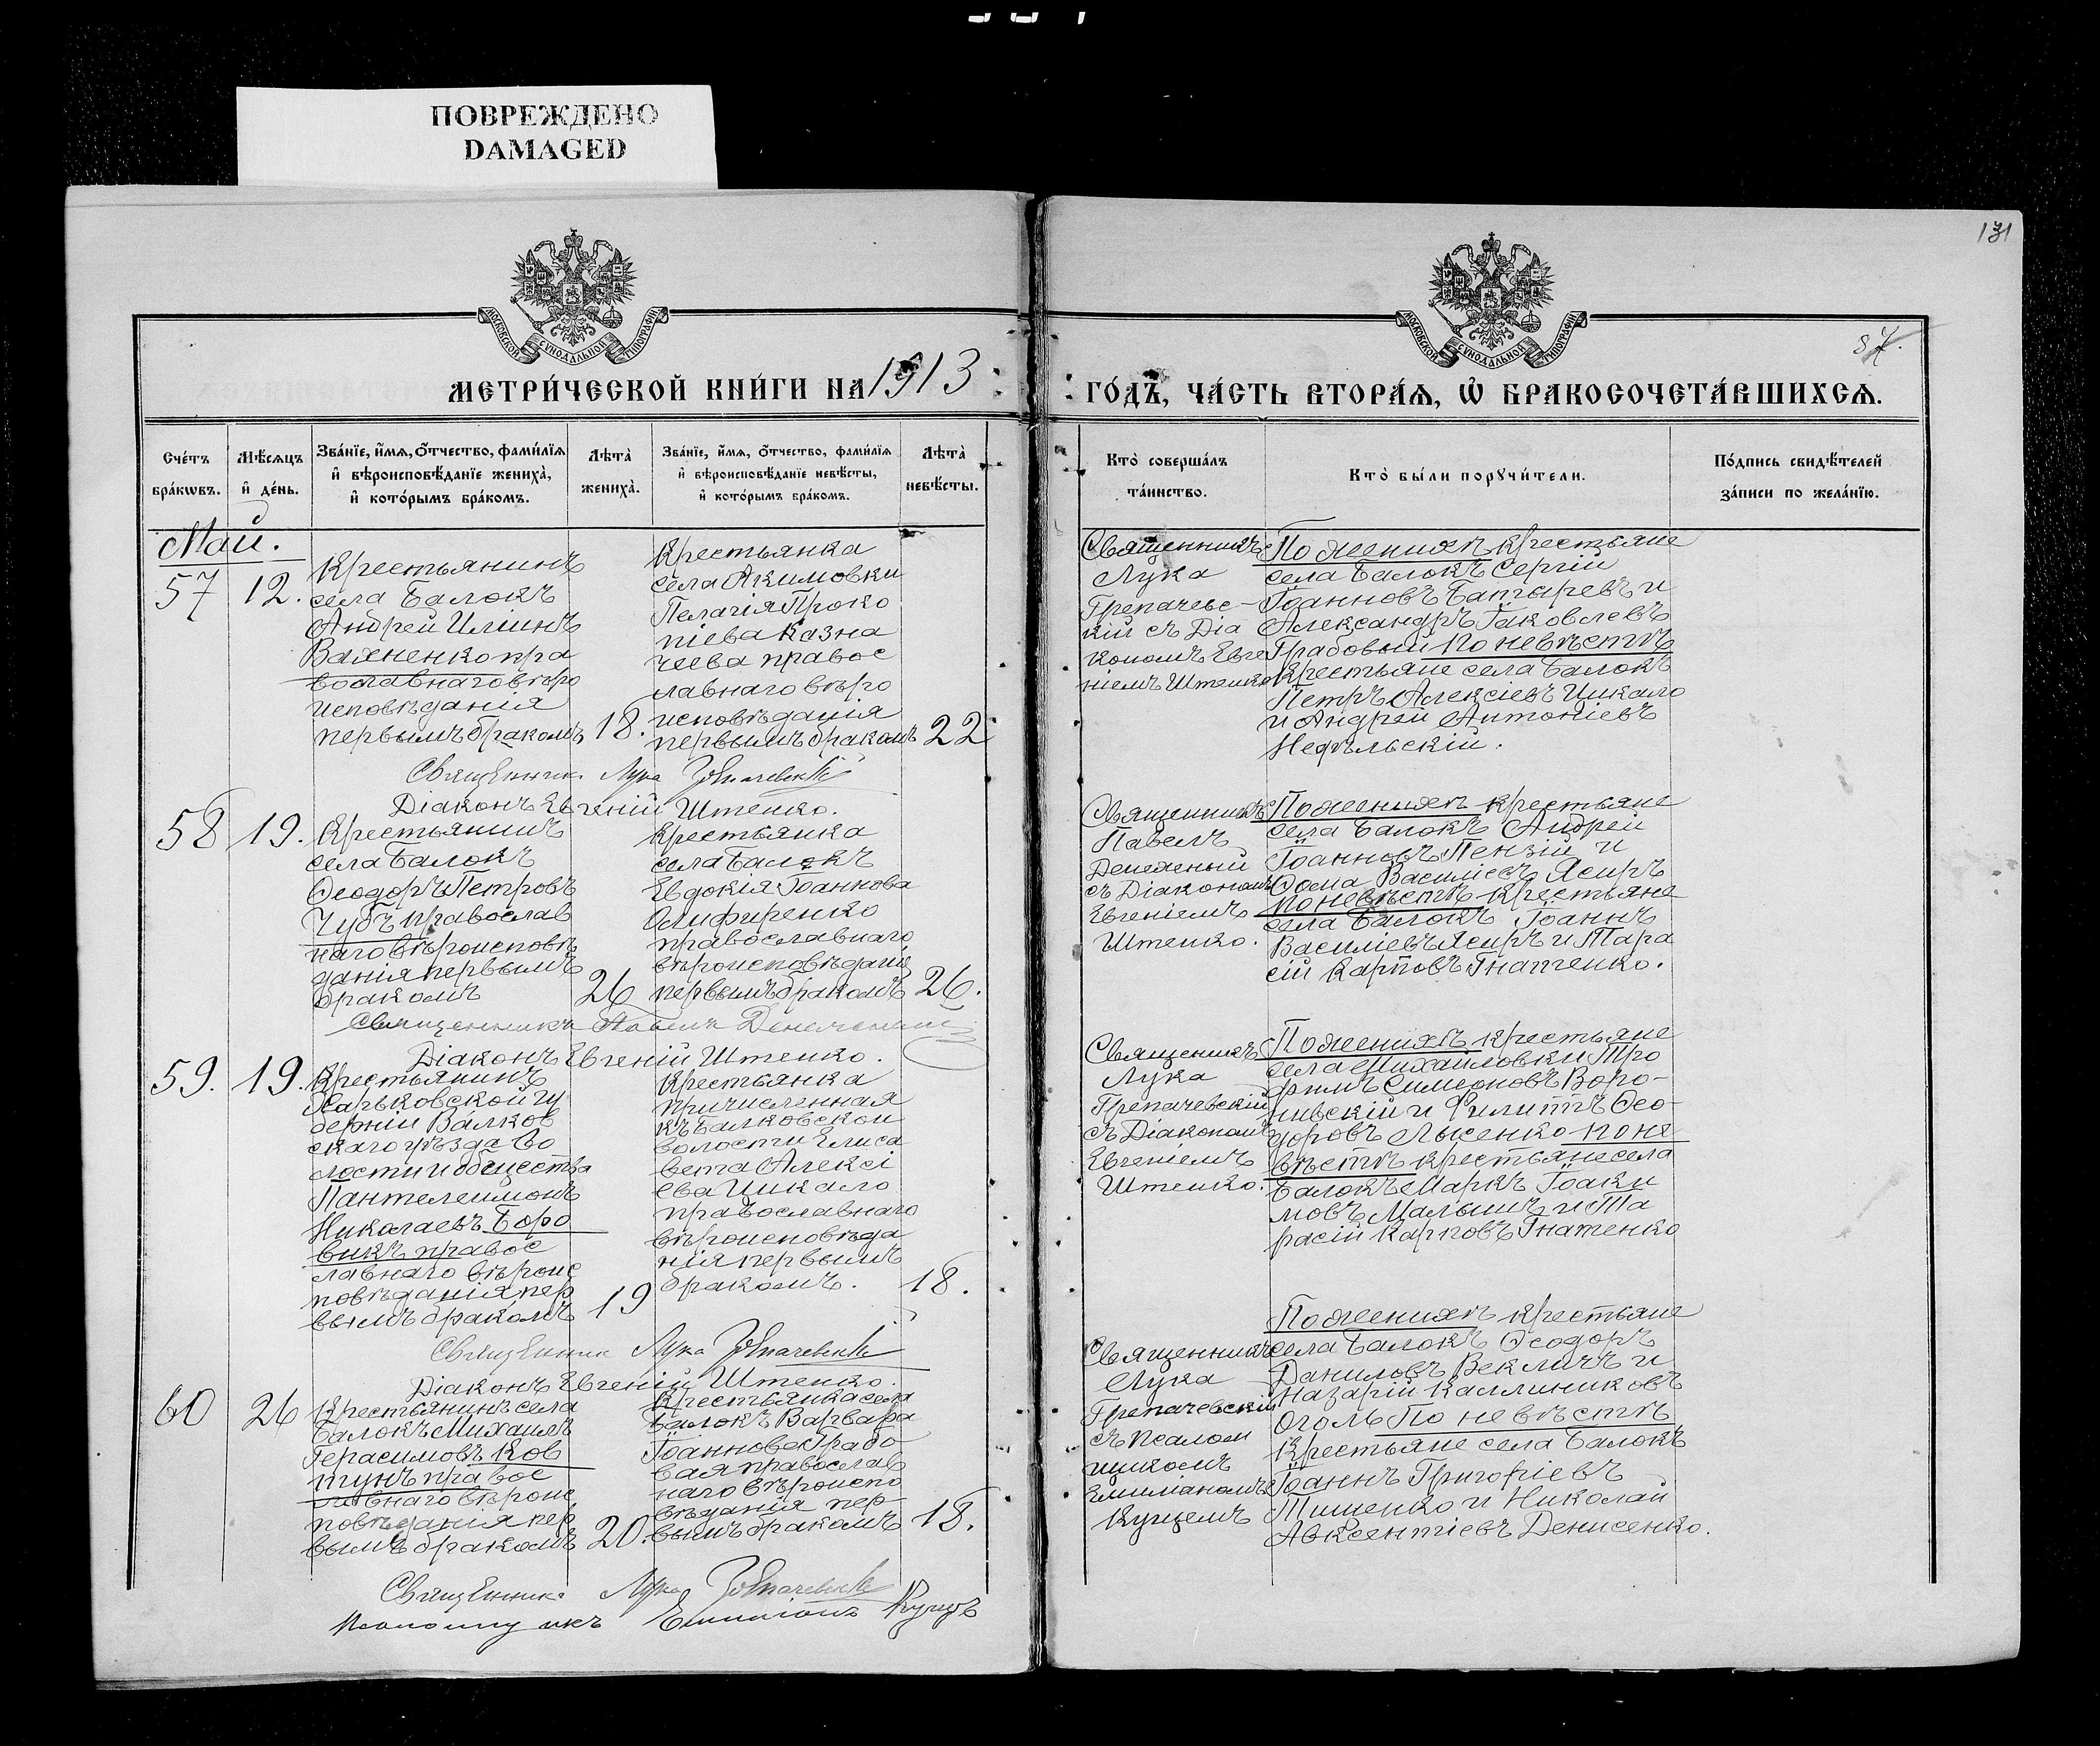 ПОВРЕЖДЕНО
DAMAGED
131
МОСКОВСКОЙ СѴНОДАЛЬНОЙ ТИПОГРАФІИ
МОСКОВСКОЙ СѴНОДАЛЬНОЙ ТИПОГРАФІИ
87.
МЕТРИ́ЧЕСКОЙ КНИ́ГИ НА 1913
ГО́ДЪ, ЧА́СТЬ ВТОРА́Ѧ, Ѡ҆ БРАКОСОЧЕТА́ВШИХСѦ.
Сче́тъ бра́кѡвъ.
Мѣ́сяцъ и҆ де́нь.
Зва́нїе, и҆́мѧ, о҆́тчество, фами́лїѧ и҆ вѣроисповѣ́данїе жениха̀, и҆ кото́рымъ бра́комъ.
Лѣ́та жениха̀.
Зва́нїе, и҆́мѧ, о҆́тчество, фами́лїѧ и҆ вѣроисповѣ́данїе невѣ́сты, и҆ кото́рымъ бра́комъ.
Лѣ́та невѣ́сты.
Кто̀ соверша́лъ та́инство.
Кто̀ бы́ли порꙋчи́тели.
По́дпись свидѣ́телей за́писи по жела́нїю.
Май.
57
12.
Крестьянинъ
села Балокъ
Андрей Иліинъ
Важненко пра
вославнаго вѣро
исповѣданія
первымъ бракомъ
18.
Крестьянка
села Акимовки
Пелагія Проко
піева Казна
чеева правос
лавнаго вѣро
исповѣданія
первымъ бракомъ
22
Священникъ
Лука
Грепачевс-
кій съ Діа
кономъ Евге
ніемъ Штепко
По женихѣ крестьяне
села Балокъ Сергій
Іоанновъ Батыревъ и
Александръ Іаковлевъ
Грабовый По невѣстѣ
Крестьяне села Балокъ
Петръ Алексіевъ Цикало
и Андрей Антоніевъ
Недѣльскій.
Священникъ Лука Грепачевскій
Діаконъ Евгеній Штепко.
58
19.
Крестьянинъ
села Балокъ
Ѳеодоръ Петровъ
Чубъ православ
наго вѣроисповѣ
данія первымъ
бракомъ
26
Крестьянка
села Балокъ
Евдокія Іоаннова
Олифиренко
православнаго
вѣроисповѣданія
первымъ бракомъ
26.
Священникъ
Павелъ
Денежный
съ Діакономъ
Евгеніемъ
Штепко.
По женихѣ крестьяне
села Балокъ Андрей
Іоанновъ Пензій и
Ѳома Василіевъ Ясиръ
по невѣстѣ крестьяне
села Балокъ Іоаннъ
Василіевъ Ясиръ и Тара
сій Карповъ Гнатченко.
Священникъ Павелъ Денежный
Діаконъ Евгеній Штепко.
59.
19.
Крестьянинъ
Харьковской гу
берніи Валков
скаго уѣзда во
лости и общества
Пантелеимонъ
Николаевъ Боро
викъ правос
лавнаго вѣроис
повѣданія пер
вымъ бракомъ
19
Крестьянка
причисленная
къ Балковской
волости Елиса
вета Алексі
ева Цикало
православнаго
вѣроисповѣда
нія первымъ
бракомъ.
18.
Священникъ
Лука
Грепачевскій
съ Діакономъ
Евгеніемъ
Штепко.
По женихѣ крестьяне
села Михайловки Тро
фимъ Симеоновъ Воро-
нивскій и Филиппъ Ѳео-
доровъ Лысенко по не
вѣстѣ крестьяне села
Балокъ Маркъ Іоаки
мовъ Малышъ и Та
расій Карповъ Гнатенко
Священникъ Лука Грепачевскій
Діаконъ Евгеній Штепко.
60
26
Крестьянинъ села
Балокъ Михаилъ
Герасимовъ Ков
тунъ правос
лавнаго вѣроис
повѣданія пер
вымъ бракомъ
20.
Крестьянка села
Балокъ Варвара
Іоаннова Грабо-
вая православ
наго вѣроиспо
вѣданія пер-
вымъ бракомъ
18.
Священникъ
Лука
Грепачевскій
съ Псалом
щикомъ
Емиліаномъ
Куцемъ
По женихѣ крестьяне
села Балокъ Ѳеодоръ
Даниловъ Векличъ и
Назарій Каллиниковъ
Оголь По невѣстѣ
Крестьяне села Балокъ
Іоаннъ Григоріевъ
Тищенко и Николай
Авксентіевъ Денисенко.
Священникъ Лука Грепачевскій
Псаломщикъ Емиліанъ Куцъ